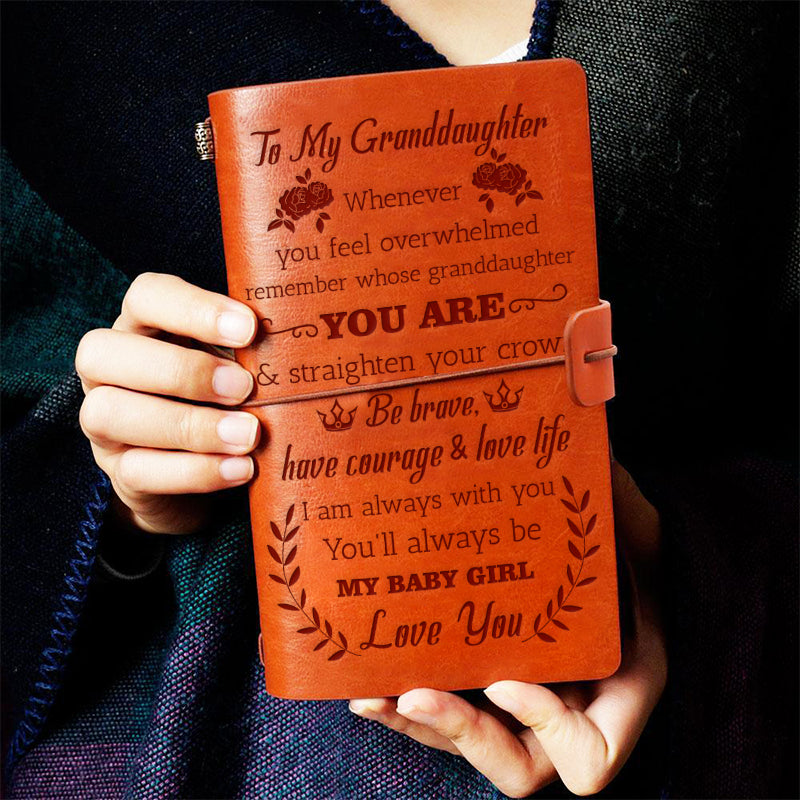 To My Granddaughter
Whenever
you feel overwhelmed
remember whose granddaughter
YOU ARE
& straighten your crow
Be brave,
have courage & love life
I am always with you
You'll always be
MY BABY GIRL
Love You